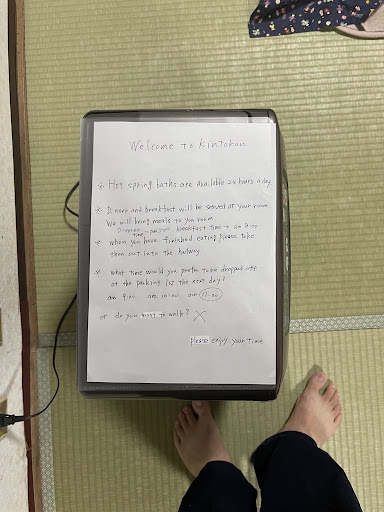 Welcome to Kintokan
※ Hot spring baths are available 24 hours a day.
※ Dinner and breakfast will be served at your room.
We will bring meals to you room
Dinner time → pm breakfast time → am 8:00
※ when you have finished eating please take
them out into the hallway
※ what time would you prefer to be dropped off
at the parking lot the next day?
am 9:00 am 10:00 am 11:00
or do you want to walk? ×
please enjoy your time